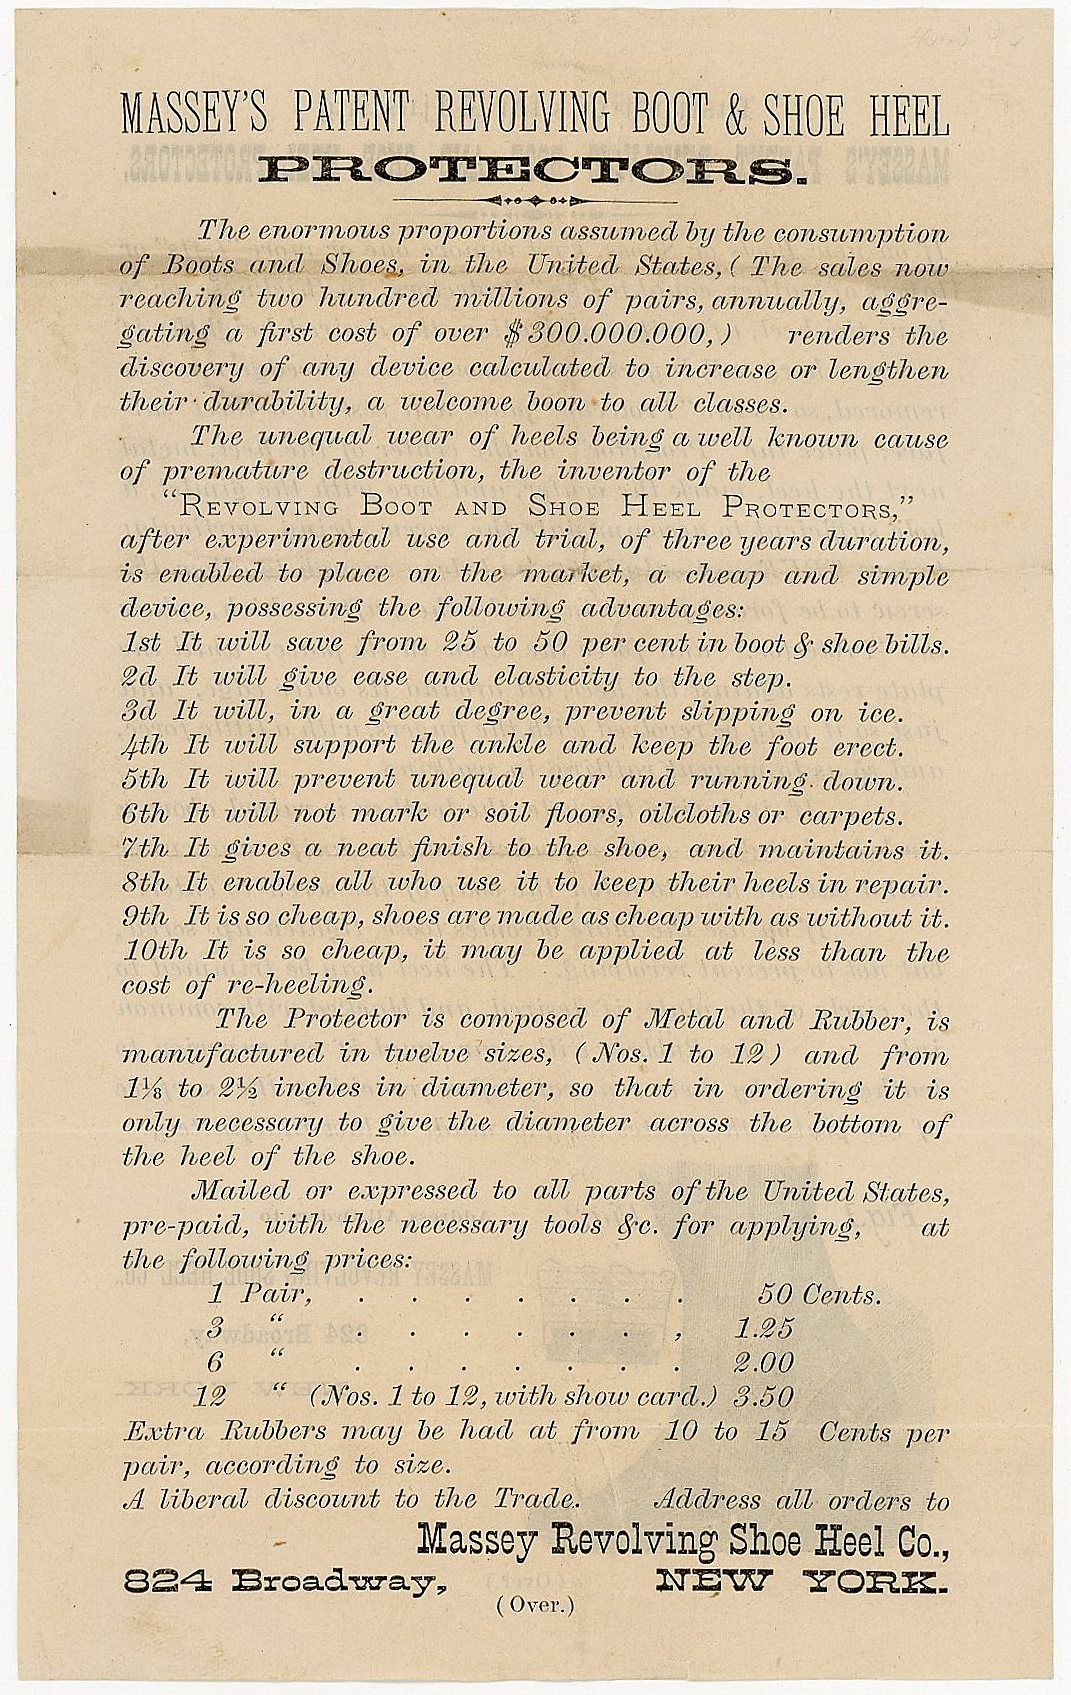 MASSEY'S PATENT REVOLVING BOOT & SHOE HEEL
PROTECTORS.
The enormous proportions assumed by the consumption
of Boots and Shoes, in the United States, ( The sales now
reaching two hundred millions of pairs, annually, aggre-
gating a first cost of over $300.000.000, ) renders the
discovery of any device calculated to increase or lengthen
their durability, a welcome boon to all classes.
The unequal wear of heels being a well known cause
of premature destruction, the inventor of the
"REVOLVING BOOT AND SHOE HEEL PROTECTORS,"
after experimental use and trial, of three years duration,
is enabled to place on the market, a cheap and simple
device, possessing the following advantages:
1st It will save from 25 to 50 per cent in boot & shoe bills.
2d It will give ease and elasticity to the step.
3d It will, in a great degree, prevent slipping on ice.
4th It will support the ankle and keep the foot erect.
5th It will prevent unequal wear and running down.
6th It will not mark or soil floors, oilcloths or carpets.
7th It gives a neat finish to the shoe, and maintains it.
8th It enables all who use it to keep their heels in repair.
9th It is so cheap, shoes are made as cheap with as without it.
10th It is so cheap, it may be applied at less than the
cost of re-heeling.
The Protector is composed of Metal and Rubber, is
manufactured in twelve sizes, ( Nos. 1 to 12 ) and from
1⅛ to 2½ inches in diameter, so that in ordering it is
only necessary to give the diameter across the bottom of
the heel of the shoe.
Mailed or expressed to all parts of the United States,
pre-paid, with the necessary tools &c. for applying, at
the following prices:
1 Pair, . . . . . . . 50 Cents.
3 " . . . . . . , 1.25
6 " . . . . . . . 2.00
12 " (Nos. 1 to 12, with show card.) 3.50
Extra Rubbers may be had at from 10 to 15 Cents per
pair, according to size.
A liberal discount to the Trade. Address all orders to
Massey Revolving Shoe Heel Co.,
824 Broadway, NEW YORK.
( Over.)